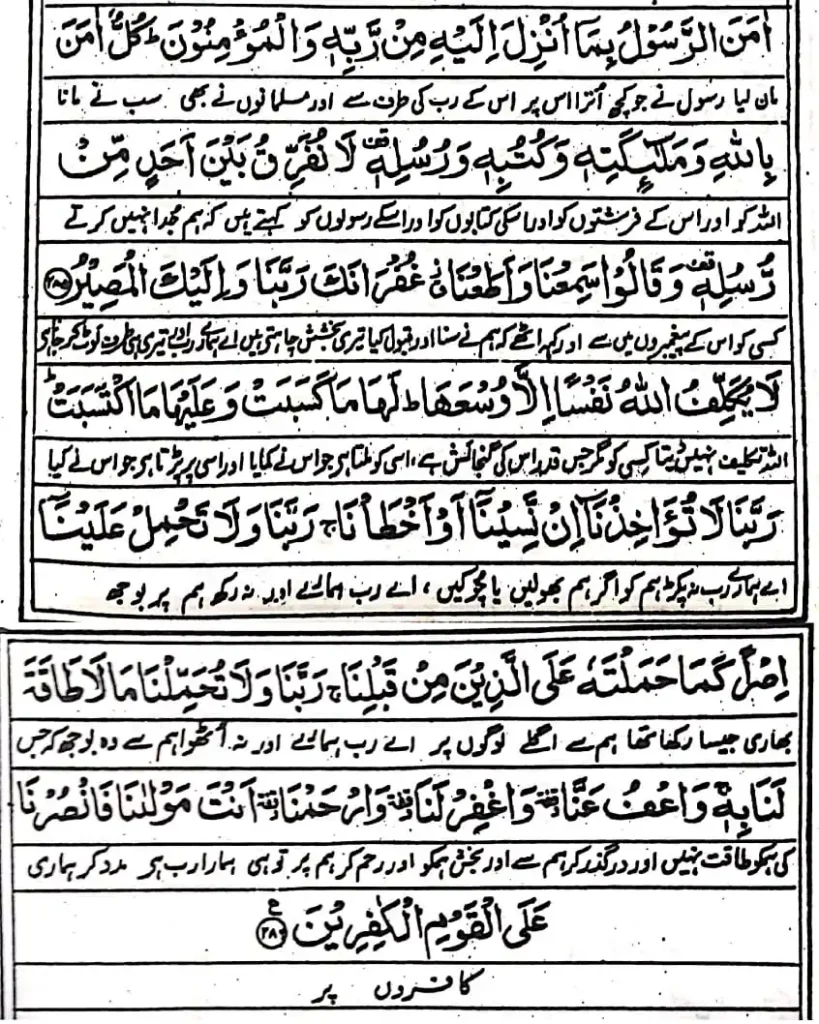 اٰمَنَ الرَّسُوْلُ بِمَآ اُنْزِلَ اِلَيْهِ مِنْ رَّبِّهٖ وَالْمُؤْمِنُوْنَ ؕ كُلٌّ اٰمَنَ
مان لیا رسول نے جو کچھ اترا اس پر اس کے رب کی طرف سے اور مسلمانوں نے بھی سب نے مانا
بِاللّٰهِ وَمَلٰٓئِكَتِهٖ وَكُتُبِهٖ وَرُسُلِهٖ ۟ لَا نُفَرِّقُ بَيْنَ اَحَدٍ مِّنْ
اللہ کو اور اس کے فرشتوں کو اور اسکی کتابوں کو اور اسکے رسولوں کو کہتے ہیں کہ ہم جدا نہیں کرتے
رُّسُلِهٖ ۟ وَقَالُوْا سَمِعْنَا وَاَطَعْنَا ۫ غُفْرَانَكَ رَبَّنَا وَاِلَيْكَ الْمَصِيْرُ ﴿۲۸۵﴾
کسی کو اس کے پیغمبروں میں سے اور کہہ اٹھے کہ ہم نے سنا اور قبول کیا تیری بخشش چاہتے ہیں اے ہمارے رب اور تیری ہی طرف لوٹ کر جانا ہے
لَا يُكَلِّفُ اللّٰهُ نَفْسًا اِلَّا وُسْعَهَا ؕ لَهَا مَا كَسَبَتْ وَعَلَيْهَا مَا اكْتَسَبَتْ ؕ
اللہ تکلیف نہیں دیتا کسی کو مگر جس قدر اس کی گنجائش ہے، اسی کو ملتا ہے جو اس نے کمایا اور اسی پر پڑتا ہے جو اس نے کیا
رَبَّنَا لَا تُؤَاخِذْنَآ اِنْ نَّسِيْنَآ اَوْ اَخْطَاْنَا ۚ رَبَّنَا وَلَا تَحْمِلْ عَلَيْنَآ
اے ہمارے رب نہ پکڑ ہم کو اگر ہم بھولیں یا چوکیں، اے رب ہمارے اور نہ رکھ ہم پر بوجھ
اِصْرًا كَمَا حَمَلْتَهٗ عَلَى الَّذِيْنَ مِنْ قَبْلِنَا ۚ رَبَّنَا وَلَا تُحَمِّلْنَا مَا لَا طَاقَةَ
بھاری جیسا رکھا تھا ہم سے اگلے لوگوں پر اے رب ہمارے اور نہ اٹھوا ہم سے وہ بوجھ کہ جس
لَنَا بِهٖ ۚ وَاعْفُ عَنَّا ۥ وَاغْفِرْ لَنَا ۥ وَارْحَمْنَا ۥ اَنْتَ مَوْلٰىنَا فَانْصُرْنَا
کی ہمکو طاقت نہیں اور درگذر کر ہم سے اور بخش ہمکو اور رحم کر ہم پر تو ہی ہمارا رب ہے مدد کر ہماری
عَلَى الْقَوْمِ الْكٰفِرِيْنَ ﴿۲۸۶﴾ ع
کافروں پر